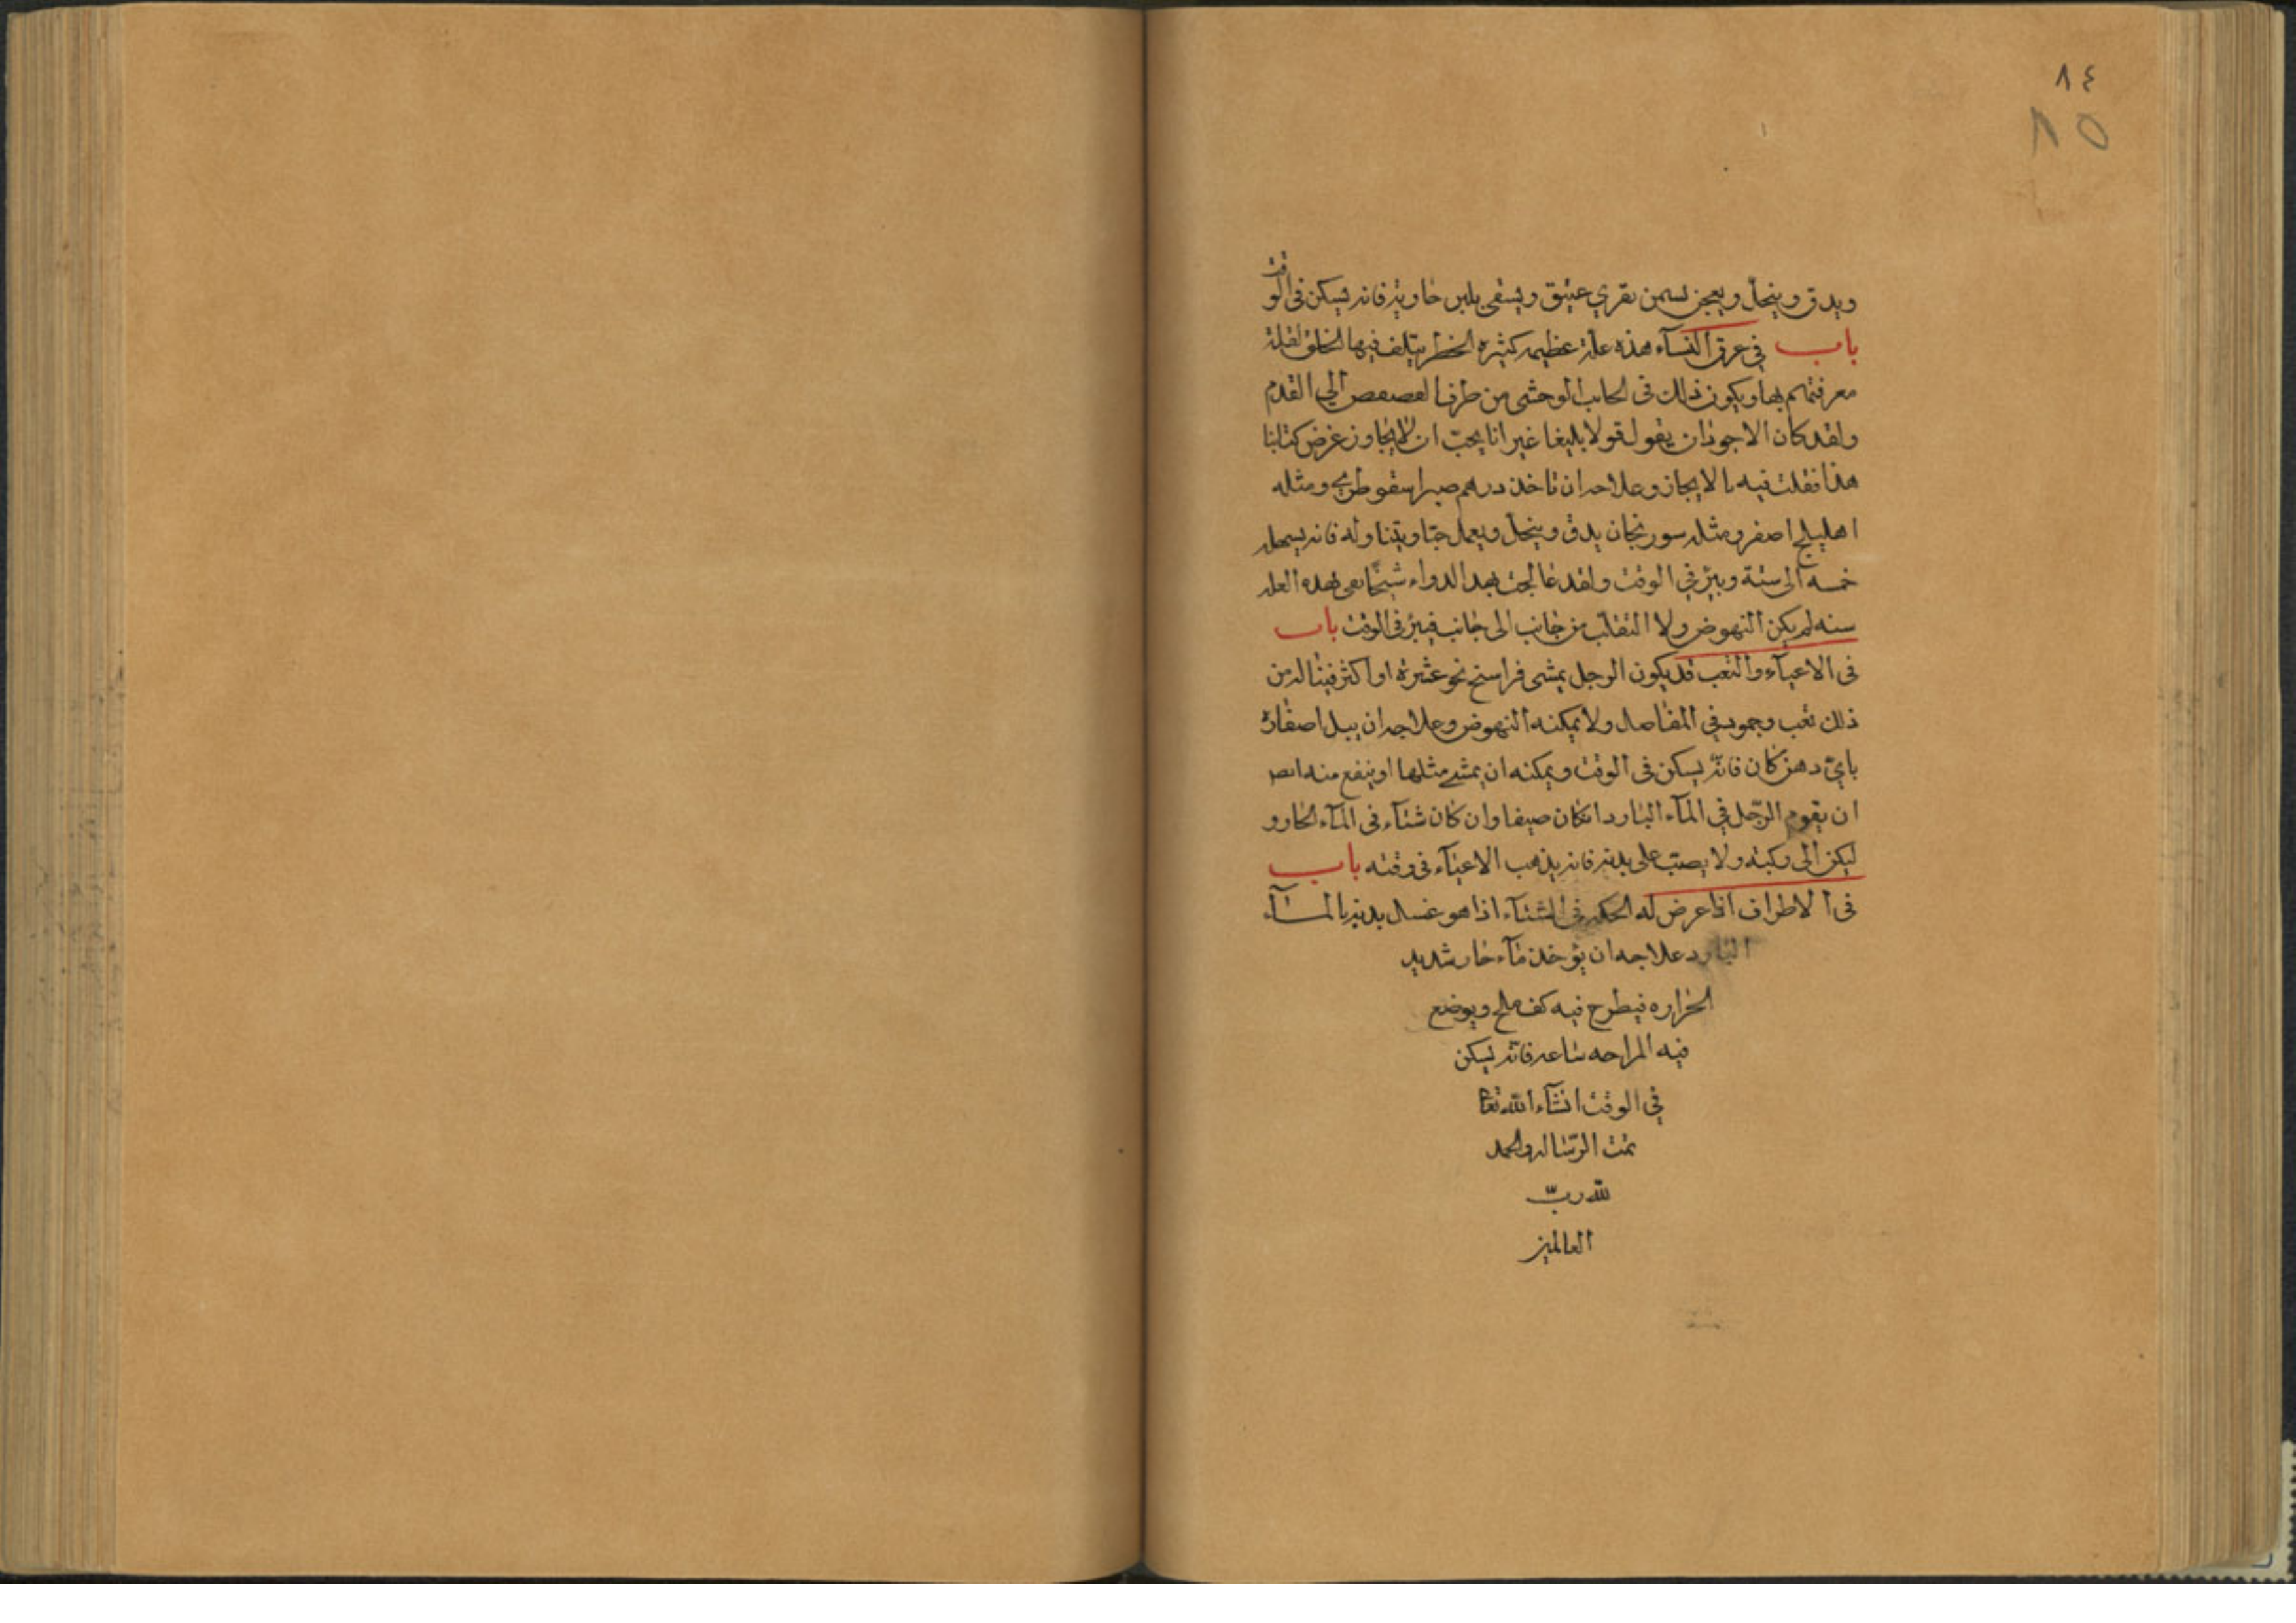 ٨٤
٨٥
ويدق وينخل ويعجن بسمن بقري عتيق ويسقى بلبن حاويته فانه يسكن في الوقت
باب في عرق النساء هذه علة عظيمه كثيره الخطر يتلف فيها الخلق لقلة
معرفتهم بها ويكون ذلك في الجانب الوحشى من طرف العصعص الى القدم
ولقد كان الاجود ان يقول قولا بليغا غير انا يجب ان لا يجاوز غرض كتابنا
هذا فقلت فيه بالايجاز وعلاجه ان تاخذ درهم صبر اسقوطري ومثله
اهليلج اصفر ومثله سورنجان يدق وينخل ويعمل حبا ويتناوله فانه يسهله
خمسه الى ستة ويبرئ في الوقت ولقد عالجت بهذا الدواء شيخا بهذه العله
سنه لم يكن النهوض ولا التقلب من جانب الى جانب فيبرئ في الوقت باب
في الاعياء والتعب قد يكون الرجل يمشى فراسخ نحو عشرة او اكثر فيناله من
ذلك تعب وجمود في المفاصل ولا يمكنه النهوض وعلاجه ان يبل اصفاره
باي دهن كان فانه يسكن في الوقت ويمكنه ان يمشي مثلها او ينفع منه ايضا
ان يقوم الرجل في الماء البارد ان كان صيفا وان كان شتاء في الماء الحار و
ليكن الى ركبته ولا يصب على بدنه فانه يذهب الاعياء في وقته باب
في الاطراف اذا عرض له الحكه في الشتاء اذا هو غسل بدنه بالماء
البارد علاجه ان يؤخذ ماء حار شديد
الحراره فيطرح فيه كف ملح ويوضع
فيه الراحه ساعه فانه يسكن
في الوقت انشاء الله تعا
تمت الرساله والحمد
لله رب
العالمين